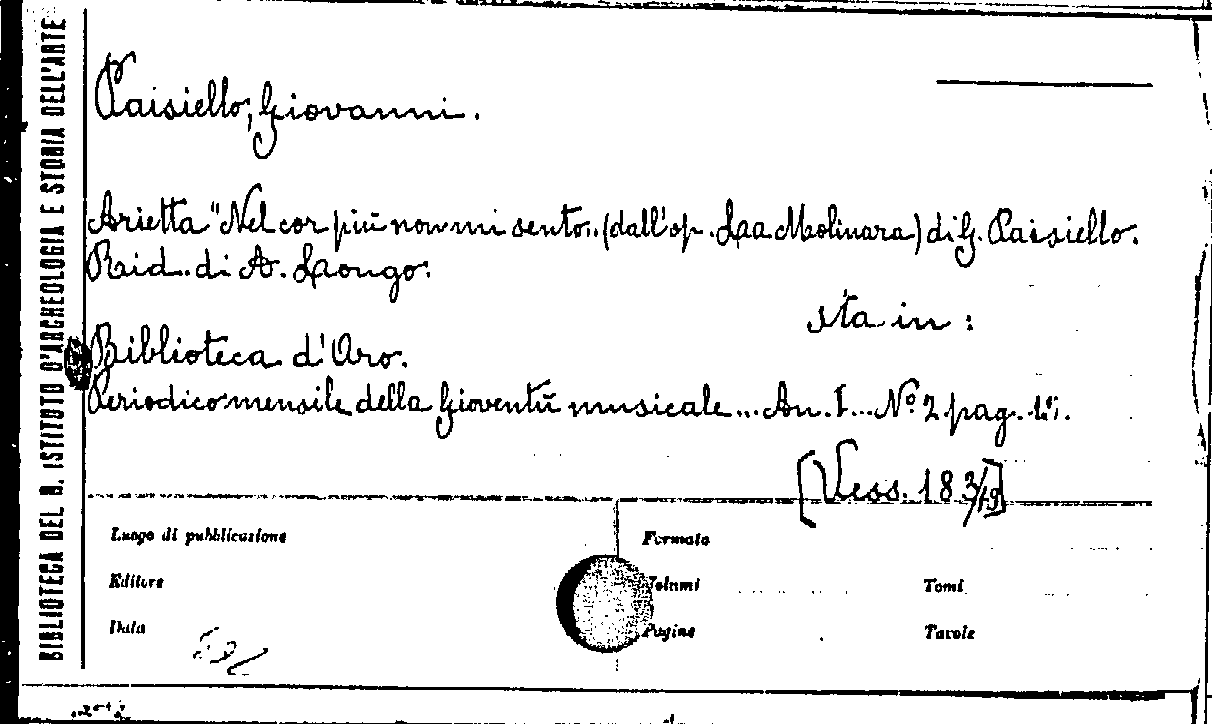 BIBLIOTECA DEL R. ISTITUTO D'ARCHEOLOGIA E STORIA DELL'ARTE
Paisiello, Giovanni.
Arietta "Nel cor più non mi sento.. (dall'op. La Molinara) di G. Paisiello.
Rid. di A. Longo.
sta in:
Biblioteca d'Oro.
Periodico mensile della Gioventù musicale... An. I... Nº 2 pag. 1
[Vess. 183/19]
Luogo di pubblicazione
Formato
Editore
Volumi
Tomi
Data
Pagine
Tavole